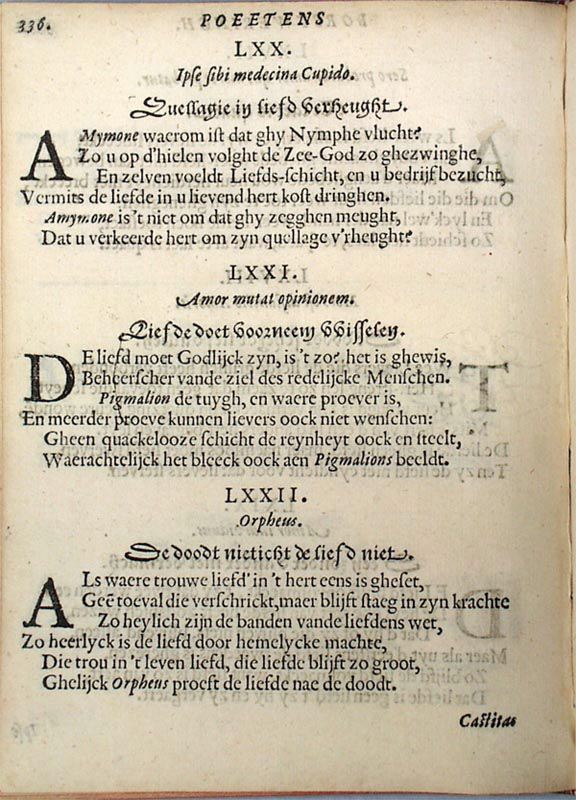 336.
POEETENS
LXX.
Ipse sibi medecina Cupido.
Quellagie in liefd verheught.
AMymone waerom ist dat ghy Nymphe vlucht?
Zo u op d'hielen volght de Zee-God zo ghezwinghe,
En zelven voeldt Liefds-schicht, en u bedrijf bezucht,
Vermits de liefde in u lievend hert kost dringhen.
Amymone is 't niet om dat ghy zegghen meught,
Dat u verkeerde hert om zyn quellage v'rheught?
LXXI.
Amor mutat opinionem.
Liefde doet voorneem wisselen.
DE liefd moet Godlijck zyn, is 't zo? het is ghewis,
Beheerscher vande ziel des redelijcke Menschen.
Pigmalion de tuygh, en waere proever is,
En meerder proeve kunnen lievers oock niet wenschen:
Gheen quackelooze schicht de reynheyt oock en steelt,
Waerachtelijck het bleeck oock aen Pigmalions beeldt.
LXXII.
Orpheus.
De doodt de liefd niet.
ALs waere trouwe liefd' in 't hert eens is gheset,
Geē toeval die verschrickt, maer blijft staeg in zyn krachte
Zo heylich zijn de banden vande liefdens wet,
Zo heerlyck is de liefd door hemelycke machte,
Die trou in 't leven liefd, die liefde blijft zo groot,
Ghelijck Orpheus proeft de liefde nae de doodt.
Castitas